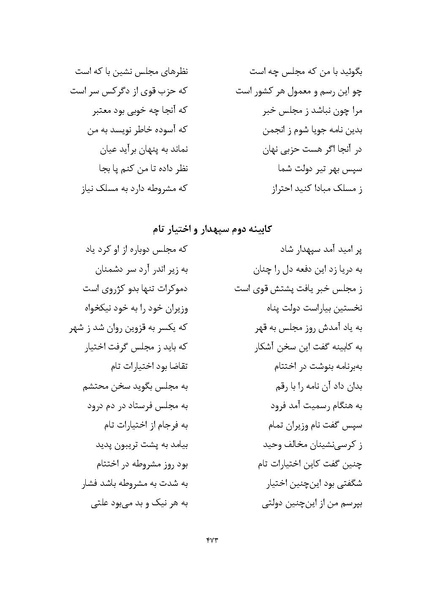 بگوئید با من که مجلس چه است نظرهای مجلس نشین با که است
چو این رسم و معمول هر کشور است که حزب قوی از دگرکس سر است
مرا چون نباشد ز مجلس خبر که آنجا چه خوبی بود معتبر
بدین نامه جویا شوم ز انجمن که آسوده خاطر نویسد به من
در آنجا اگر هست حزبی نهان نماند به پنهان برآید عیان
سپس بهر تیر دولت شما نظر داده تا من کنم پا بجا
ز مسلک مبادا کنید احتراز که مشروطه دارد به مسلک نیاز
کابینه دوم سپهدار و اختیار تام
پر امید آمد سپهدار شاد که مجلس دوباره از او کرد یاد
به دریا زد این دفعه دل را چنان به زیر اندر آرد سر دشمنان
ز مجلس خبر یافت پشتش قوی است دموکرات تنها بدو کژروی است
نخستین بیاراست دولت پناه وزیران خود را به خود نیکخواه
به یاد آمدش روز مجلس به قهر که یکسر به قزوین روان شد ز شهر
به کابینه گفت این سخن آشکار که باید ز مجلس گرفت اختیار
به‌برنامه بنوشت در اختتام تقاضا بود اختیارات تام
بدان داد آن نامه را با رقم به مجلس بگوید سخن محتشم
به هنگام رسمیت آمد فرود به مجلس فرستاد در دم درود
سپس گفت نام وزیران تمام به فرجام از اختیارات تام
ز کرسی‌نشینان مخالف وحید بیامد به پشت تریبون پدید
چنین گفت کاین اختیارات تام بود روز مشروطه در اختتام
شگفتی بود این‌چنین اختیار به شدت به مشروطه باشد فشار
بپرسم من از این‌چنین دولتی به هر نیک و بد می‌بود علتی
۴۷۳